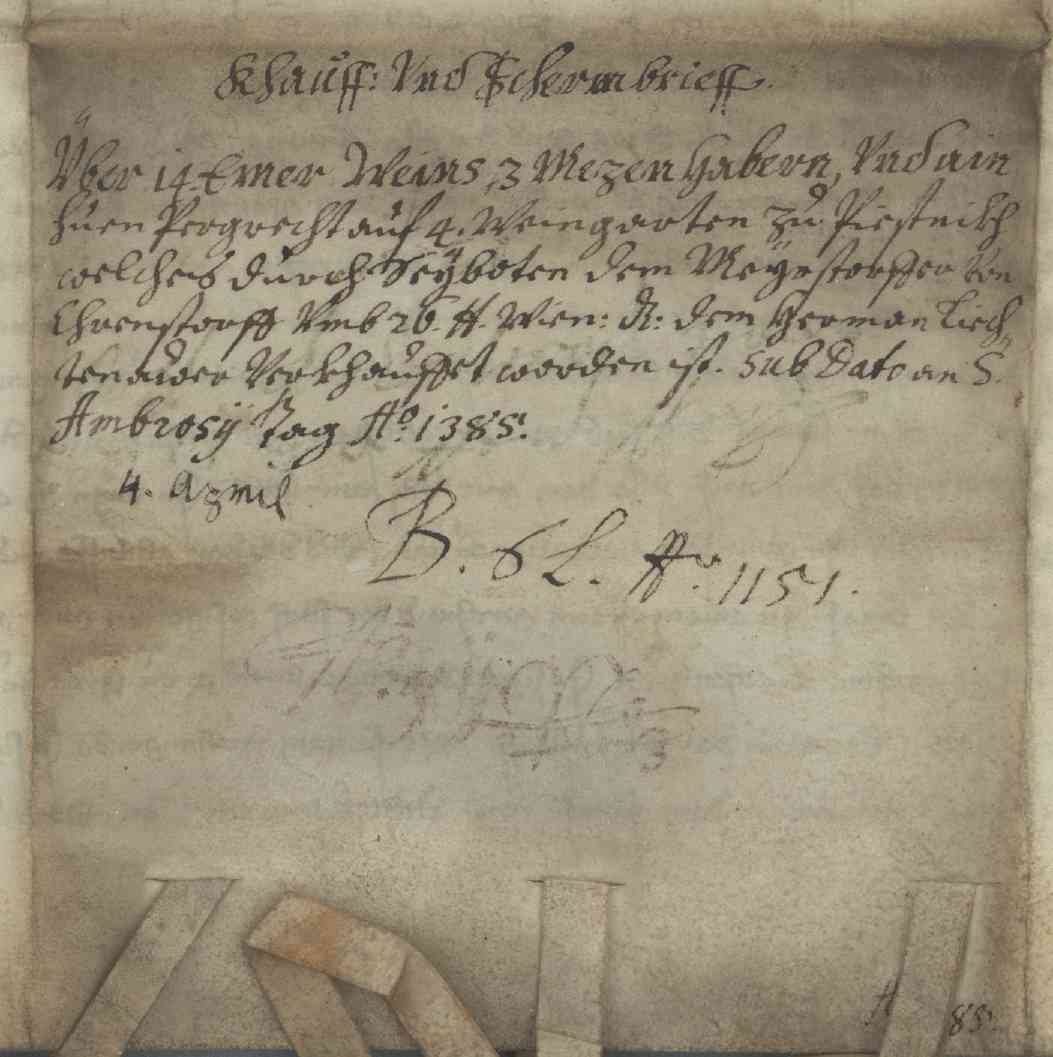 Khauff: Vnd Schermbrieff.
Über 14 Emer Weins, 3 Mezen Habern, Vnd ain
huen Pergrecht auf 4. Weingarten zu Piestnikh
welches durch Seyboten dem Meÿrstorffer Von
Ehrenstorff Vmb 26. ℔. Wien: ₰: dem Herman Liech„
tenawer Verkhauffet worden ist. Sub Dato an S.
Ambrosÿ tag Aº. 1385.
4. April
B. 6 L. Nº. 1151.
85.